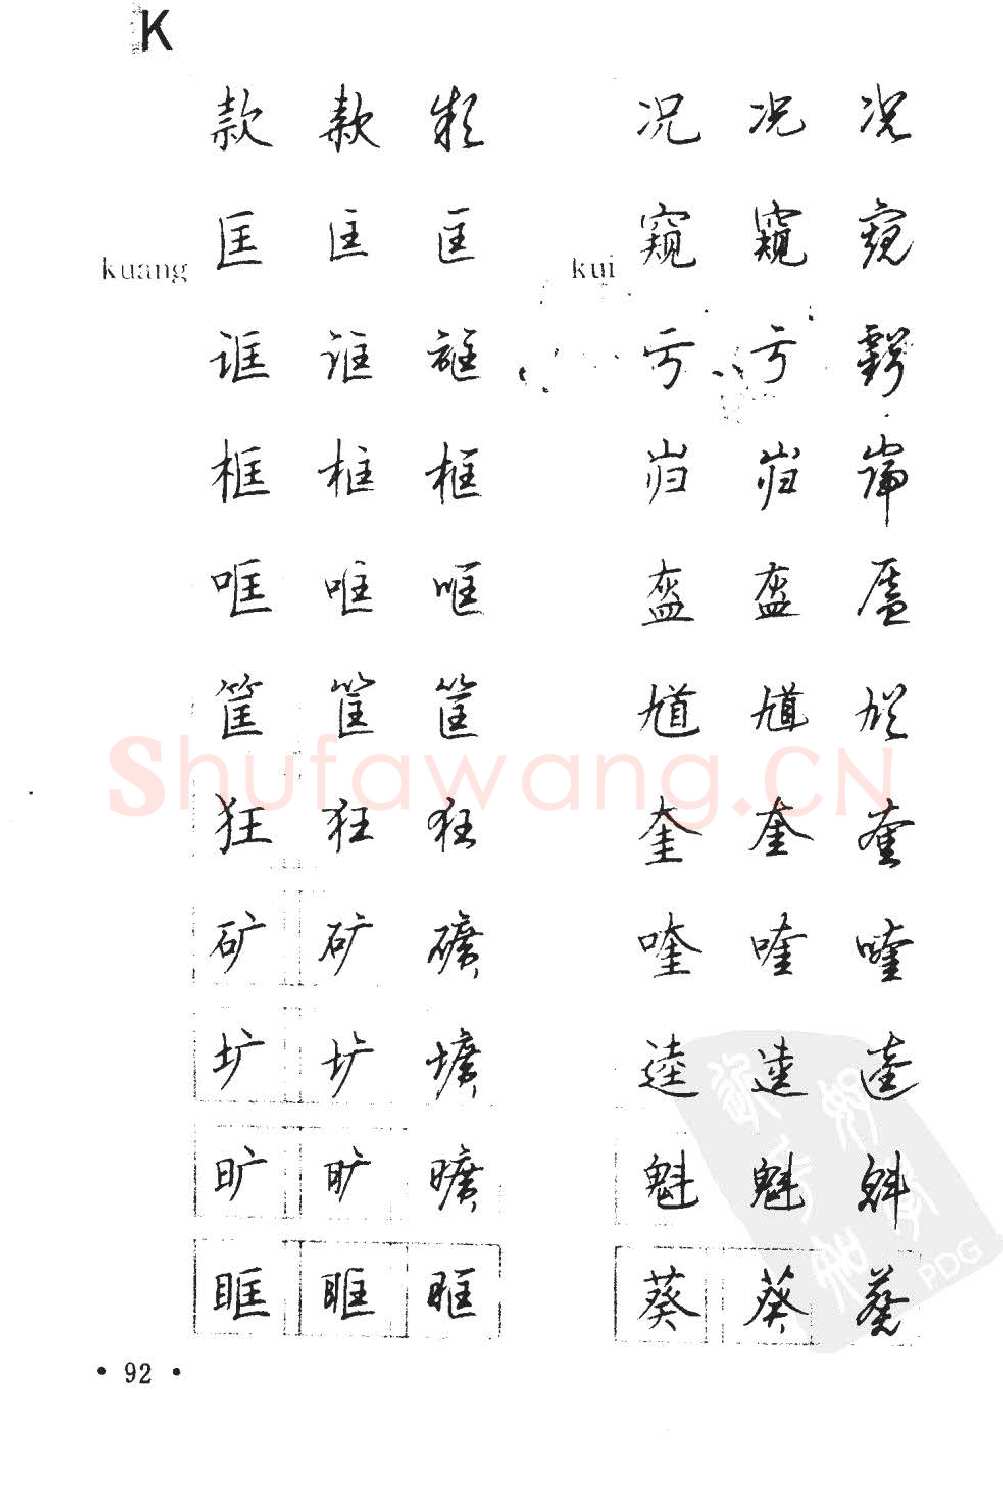 K
款 款 款 况 况 况
kuang 匡 匡 匡 kui 窥 窥 窺
诓 诓 誆 亏 亏 虧
框 框 框 岿 岿 巋
哐 哐 哐 盔 盔 盔
筐 筐 筐 馗 馗 馗
狂 狂 狂 奎 奎 奎
矿 矿 礦 喹 喹 喹
圹 圹 壙 逵 逵 逵
旷 旷 曠 魁 魁 魁
眶 眶 眶 葵 葵 葵
• 92 •
Shufawang.CN
PDG